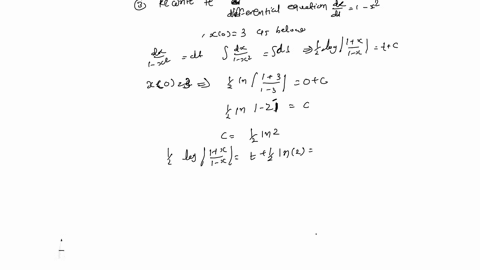 ③ Rewrite te differential equation dx/dt = 1 - x²
, x(0) = 3 as below
dx/1-x² = dt ∫ dx/1-x² = ∫ dt ⇒ 1/2 log |1+x/1-x| = t + C
x(0) = 3 ⇒ 1/2 ln |1+3/1-3| = 0 + C
1/2 ln |-2| = C
C = 1/2 ln 2
1/2 log |1+x/1-x| = t + 1/2 ln(2) =